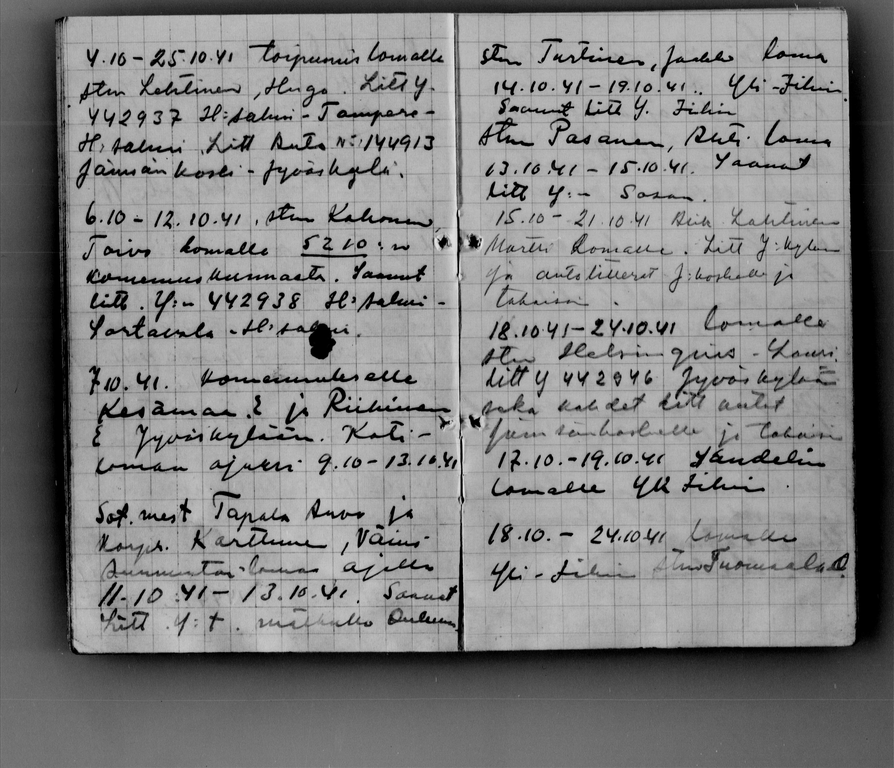 4.10 – 25.10.41 toipumis lomalle
stm Lehtinen, Hugo. Litt Y.
442937 H:salmi – Tampere –
H:salmi. Litt Auto No: 144913
Jämsänkoski – Jyväskylä.
6.10 – 12.10.41. stm Kohonen
Toivo lomalle 5210:n
komennuskunnasta. Saanut
litt. Y:n 442938 H:salmi –
Sortavala – H:salmi.
7.10.41. komennukselle
Kesämaa E ja Riihinen
E Jyväskylään. Koti-
loman ajaksi 9.10 – 13.10.41
Sot.mest Tapala Arvo ja
Korpr. Karttunen, Väinö
lomas ajalla
11.10.41 – 13.10.41. Saanut
Litt. Y:t. matkalle
stm Turtinen, Jaakko loma
14.10.41 – 19.10.41. Yli-Iihin
Saanut Litt Y. Iihin
stm Pasanen, Antti loma
13.10.41 – 15.10.41. Saanut
Litt Y:n
15.10 – 21.10.41 Lahtinen
Martti lomalle. Litt Y:kylään
ja autolitterat J:koskelle ja
takaisin.
18.10.41 – 24.10.41 lomalle
stm Helsingius – Lauri
Litt Y 442946 Jyväskylään
sekä kahdet litt autot
Jämsänkoskelle ja takaisin
17.10. – 19.10.41 Sandelin
lomalle Yli Iihin.
18.10. – 24.10.41 lomalle
Yli-Iihin stm Tuomaala